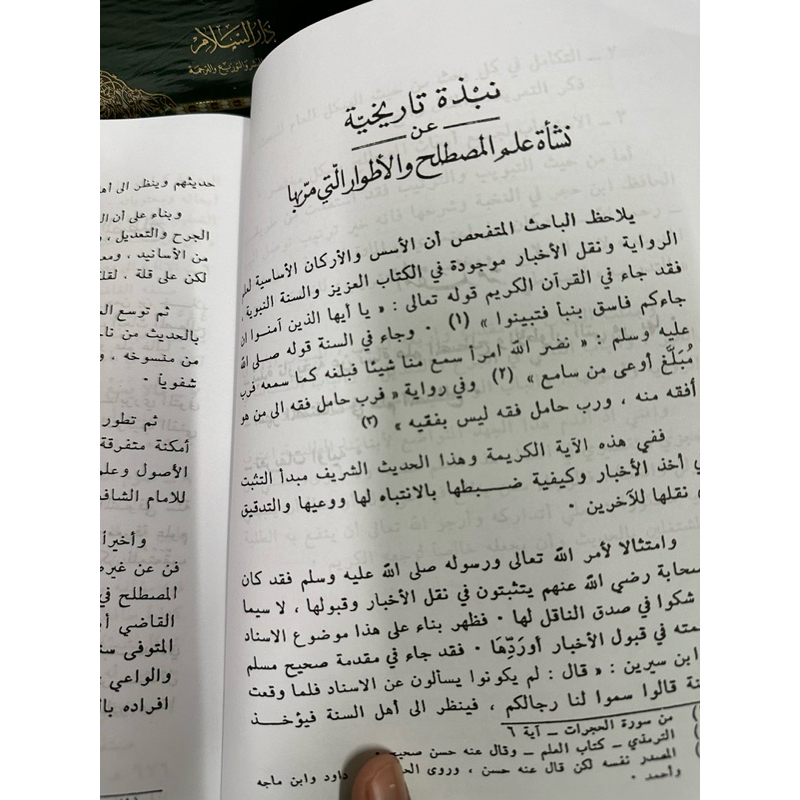 دار السلام
نبذة تاريخية
عن
نشأة علم المصطلح والأطوار التي مر بها
يلاحظ الباحث المتفحص أن الأسس والأركان الأساسية لعلم
الرواية ونقل الأخبار موجودة في الكتاب العزيز والسنة النبوية .
فقد جاء في القرآن الكريم قوله تعالى : « يا أيها الذين آمنوا ان
جاءكم فاسق بنبأ فتبينوا » (١) . وجاء في السنة قوله صلى الله
عليه وسلم : « نضر الله امرأ سمع منا شيئا فبلغه كما سمعه فرب
مُبَلَّغ أوعى من سامع » (٢) وفي رواية « فرب حامل فقه الى من هو
أفقه منه ، ورب حامل فقه ليس بفقيه » (٣)
ففي هذه الآية الكريمة وهذا الحديث الشريف مبدأ التثبت
أخذ الأخبار وكيفية ضبطها بالانتباه لها ووعيها والتدقيق
نقلها للآخرين .
وامتثالا لأمر الله تعالى ورسوله صلى الله عليه وسلم فقد كان
رضي الله عنهم يتثبتون في نقل الأخبار وقبولها ، لا سيما
شكوا في صدق الناقل لها . فظهر بناء على هذا موضوع الاسناد
في قبول الأخبار أورَدِّهَا . فقد جاء في مقدمة صحيح مسلم
ابن سيرين : « قال : لم يكونوا يسألون عن الاسناد فلما وقعت
قالوا سموا لنا رجالكم ، فينظر الى أهل السنة فيؤخذ
من سورة الحجرات - آية ٦
الترمذي - كتاب العلم - وقال عنه حسن صحيح .
المصدر نفسه لكن قال عنه حسن ، وروى داود وابن ماجه
وأحمد .
حديثهم وينظر الى
وبناء على أن
الجرح والتعديل ،
من الأسانيد ،
لكن على قلة ،
ثم توسع
بالحديث من
من منسوخه ،
شفوياً .
ثم تطور
أمكنة متفرقة
الأصول
للامام
وأخيراً
فن عن
المصطلح في
القاضي
المتوفى
والواعي
افراده